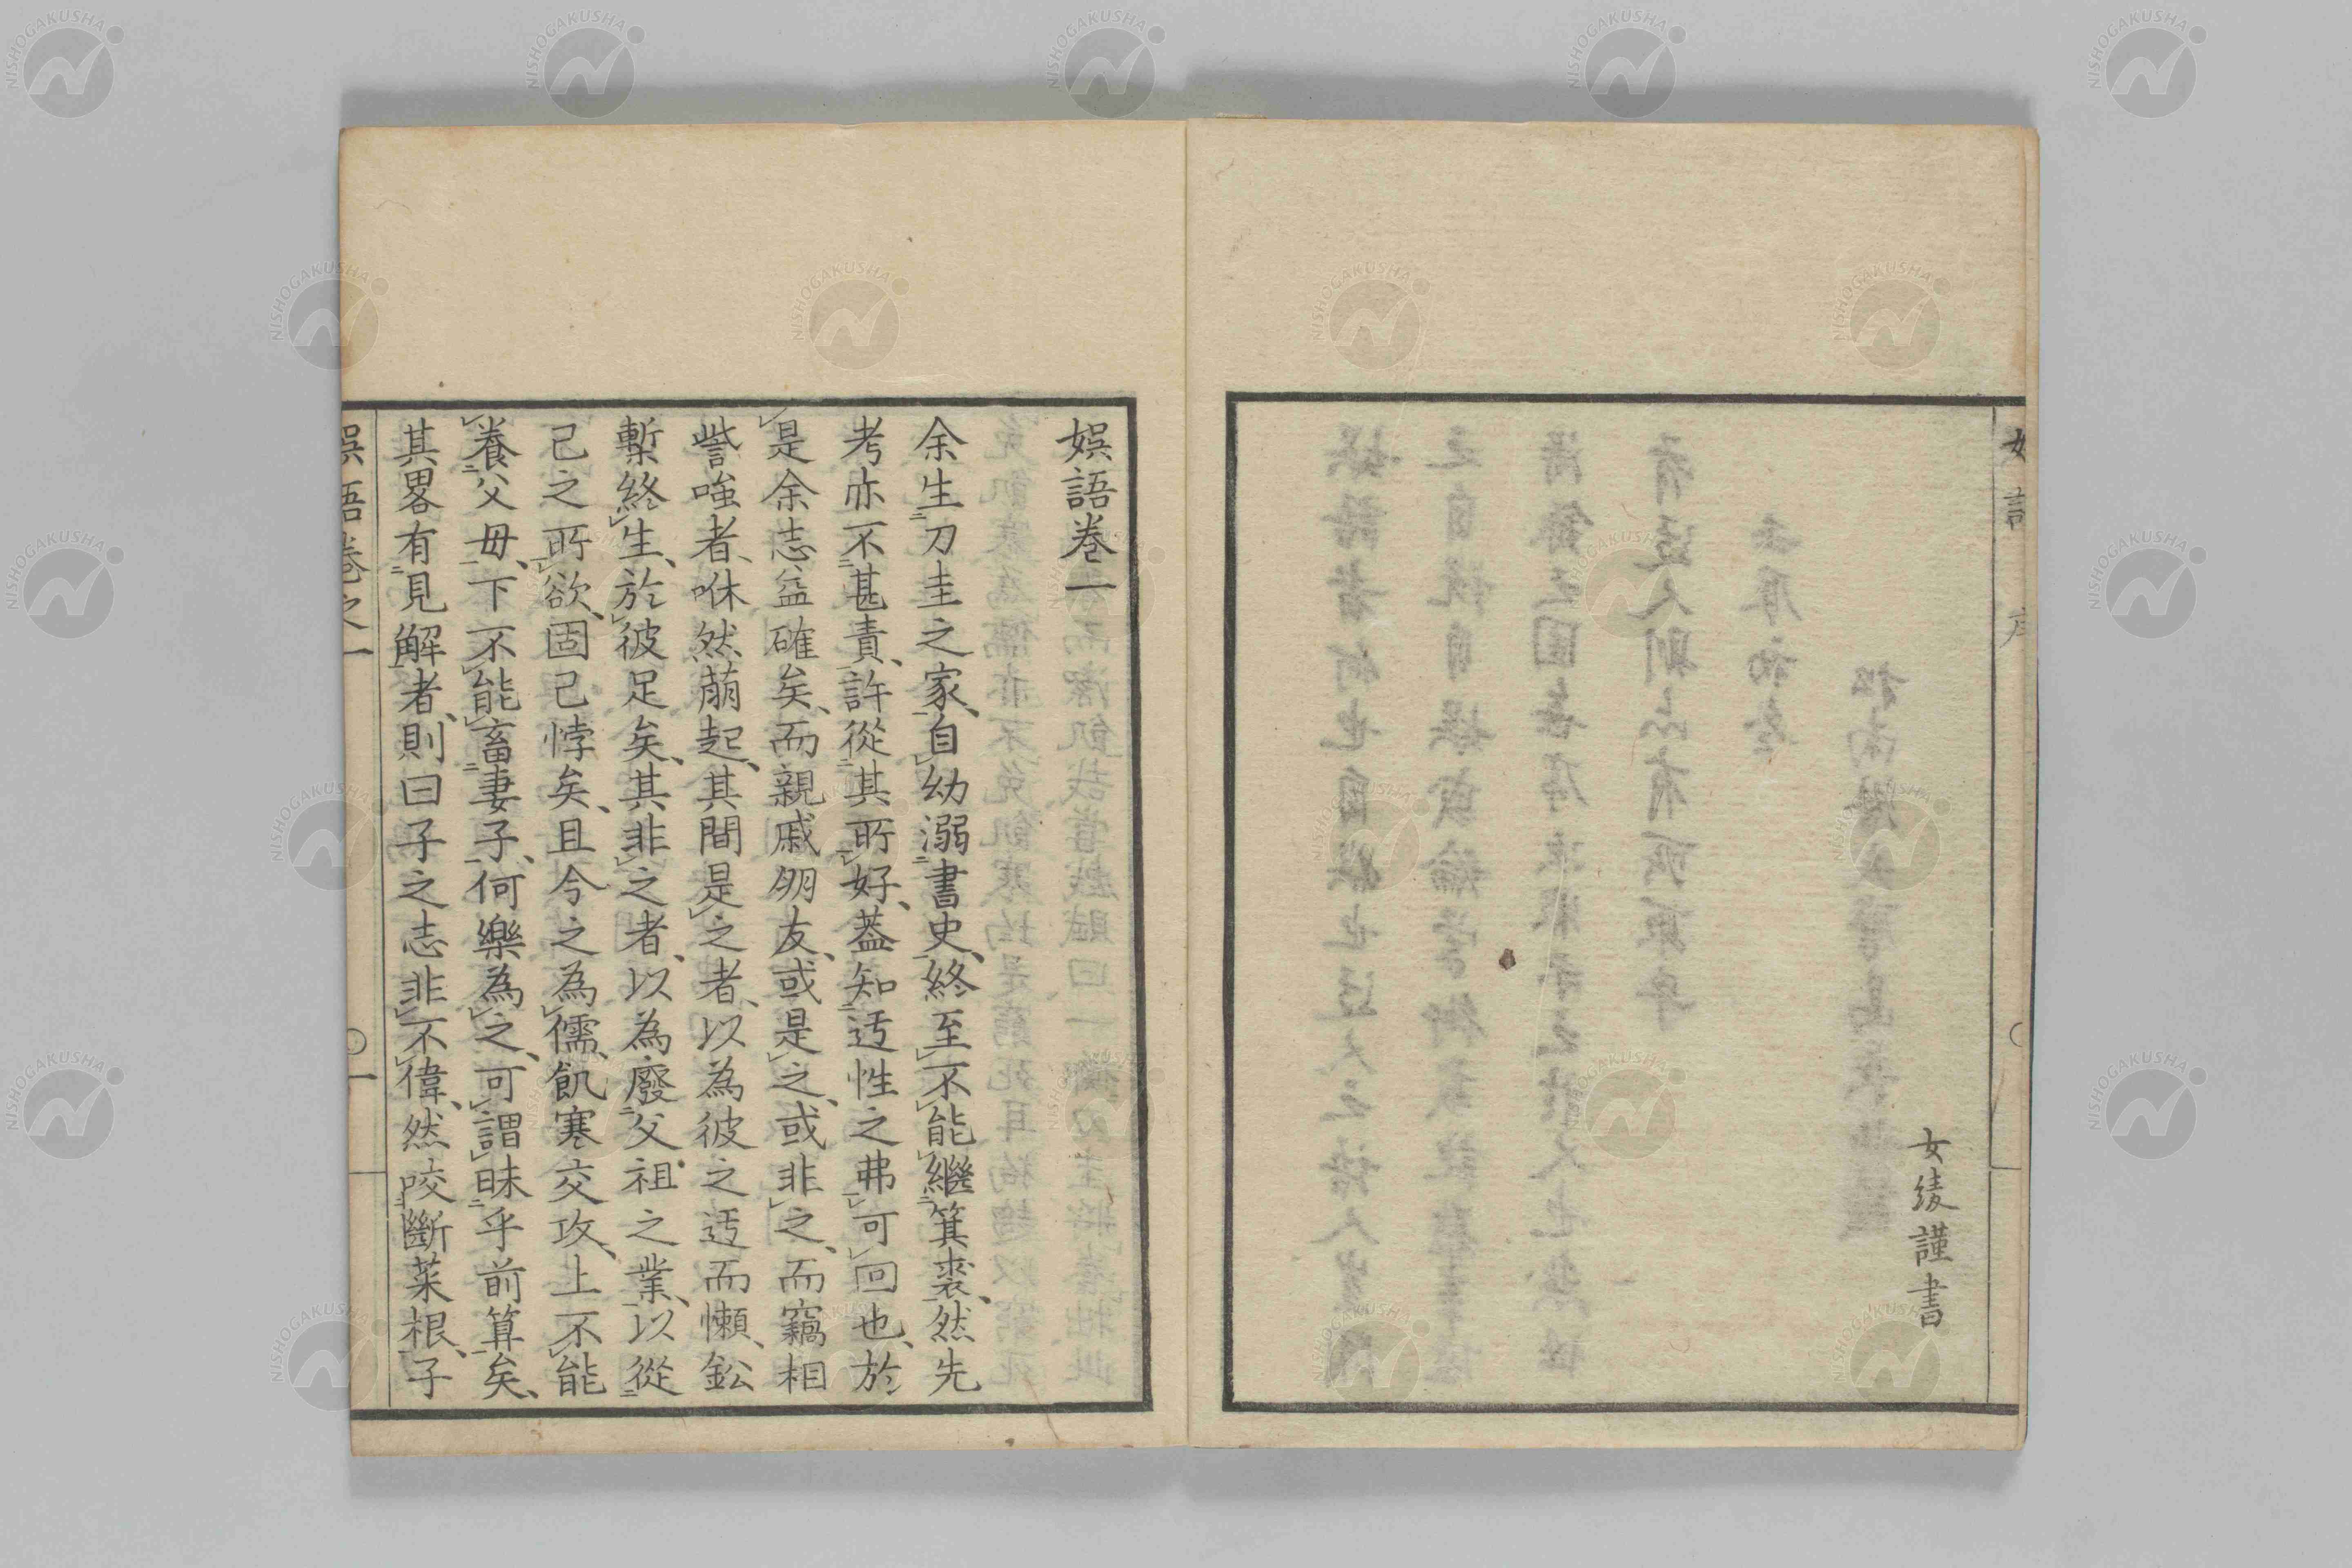 女綾謹書
娯語卷一
余生刀圭之家、自幼溺書史、終至不能繼箕裘、然先
考亦不甚責、許從其所好、蓋知迂性之弗可回也、於
是余志益確矣、而親戚朋友、或是之、或非之、而竊相
訾嗤者、咻然萠起、其間是之者、以為彼之迂而懶、鈆
槧終生、於彼足矣、其非之者、以為廢父祖之業、以從
己之所欲、固已悖矣、且今之為儒、飢寒交攻、上不能
養父母、下不能畜妻子、何樂為之、可謂昧乎前算矣、
其畧有見解者、則曰子之志非不偉、然咬斷菜根、子
娯語卷之一
○一
NISHOGAKUSHA